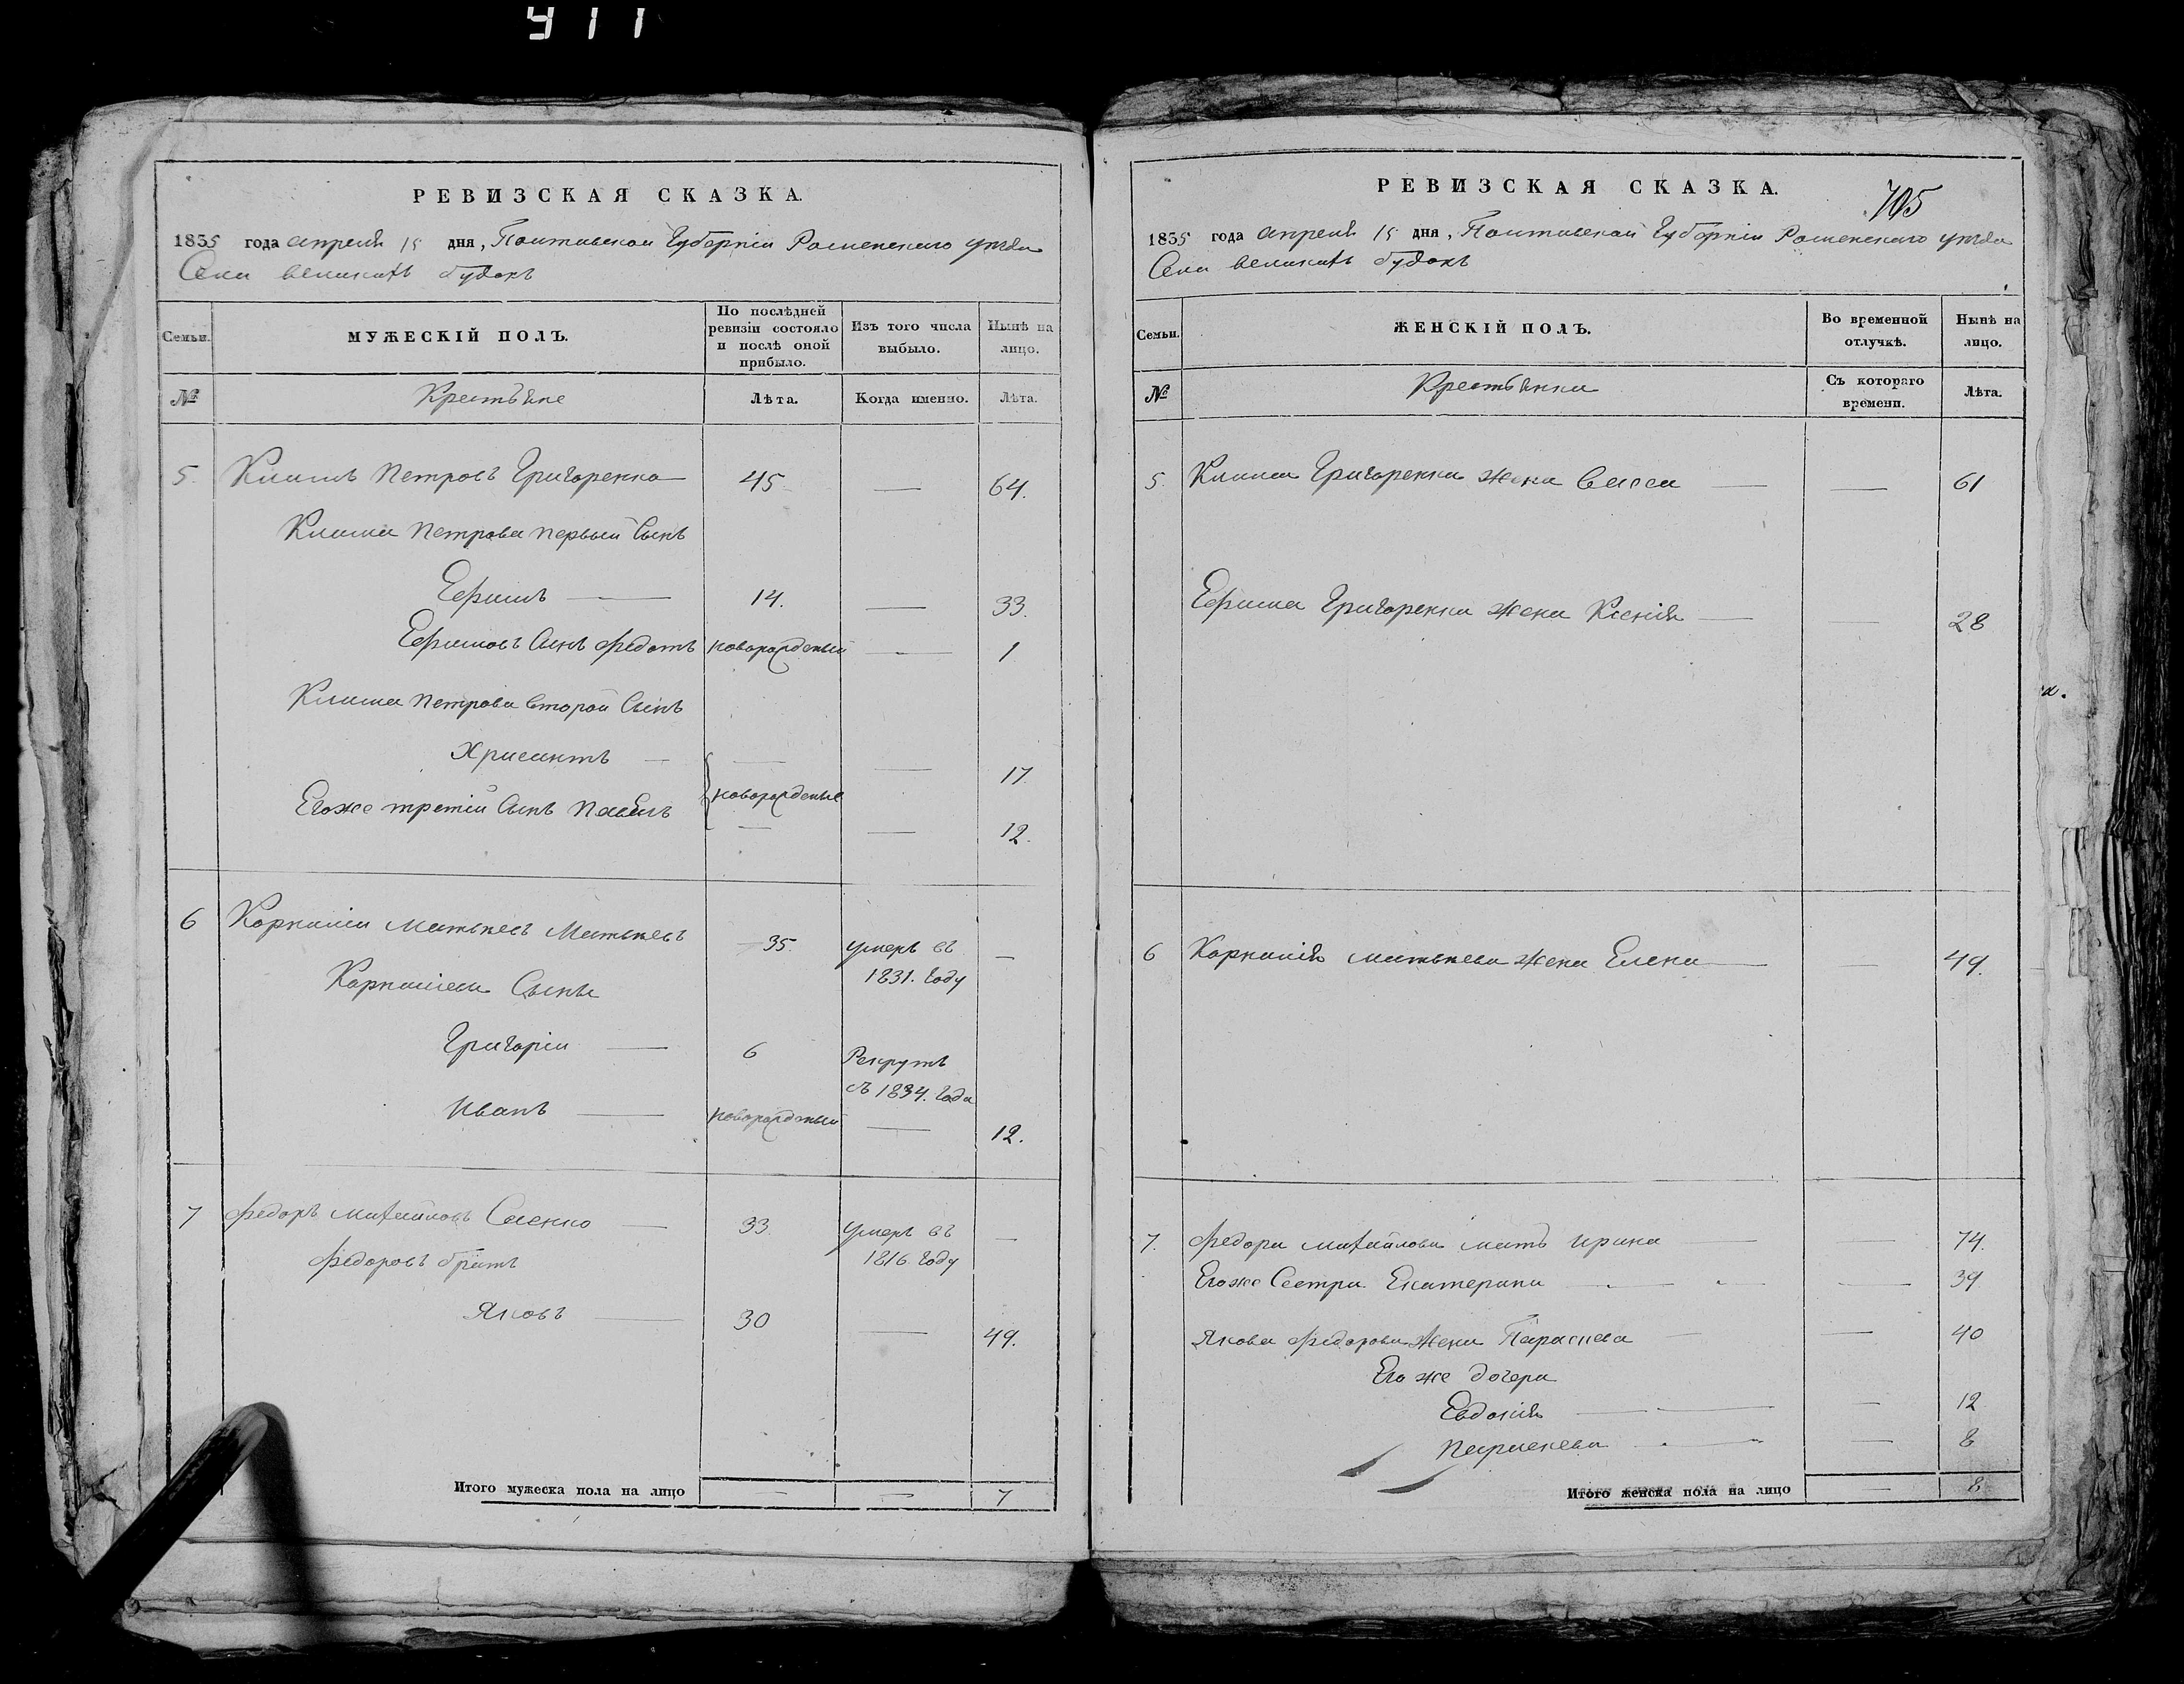 РЕВИЗСКАЯ СКАЗКА.
1835 года апреля 15 дня, Полтавской Губернии Роменского уезда
Села великихъ будокъ
Семьи.
МУЖЕСКІЙ ПОЛЪ.
По послѣдней ревизіи состояло и послѣ оной прибыло.
Изъ того числа выбыло.
Нынѣ на лицо.
№
Крестьяне
Лѣта.
Когда именно.
Лѣта.
5. Климъ Петровъ Григоренко 45 — 64.
Клима Петрова первый Сынъ
Ефимъ — 14. — 33.
Ефимовъ Сынъ Федотъ новорожденый — 1
Клима Петрова второй Сынъ
Хрисантъ — — — 17.
новорожденые
Егоже третій Сынъ Павелъ — — 12.
6 Корнилій Матвѣевъ Матвѣевъ 35. умеръ въ —
1831. году
Корнилиевы Сыны
Григорій — 6 Рекрутъ
съ 1834. года
Иванъ — новорожденый — 12.
7 Федоръ Михайловъ 33. умеръ въ —
1816 году
Федоровъ братъ
Яковъ — 30 — 49.
Итого мужеска пола на лицо — — 7
РЕВИЗСКАЯ СКАЗКА.
705
1835 года апреля 15 дня, Полтавской Губерніи Роменского уезда
Села великихъ будокъ
Семьи.
ЖЕНСКІЙ ПОЛЪ.
Во временной отлучкѣ.
Нынѣ на лицо.
№
Крестьянки
Съ котораго времени.
Лѣта.
5. Клима Григоренка жена Васса — — 61
Ефима Григоренка жена Ксенія — — 28
6 Корнилія Матвѣева жена Елена — — 49.
7. Федора Михайлова мать Ирина — — 74.
Егоже Сестра Екатерина — — 39
Якова Федорова жена Параскева — — 40
Его же дочери
Евдокія — — 12
Параскева — — 8
Итого женска пола на лицо — 8